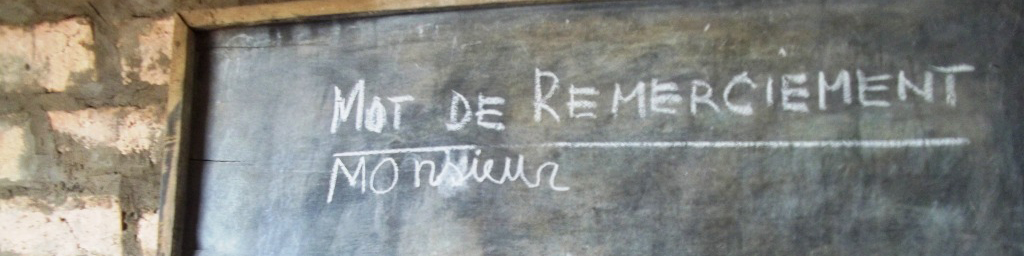 MOT DE REMERCIEMENT
Monsieur